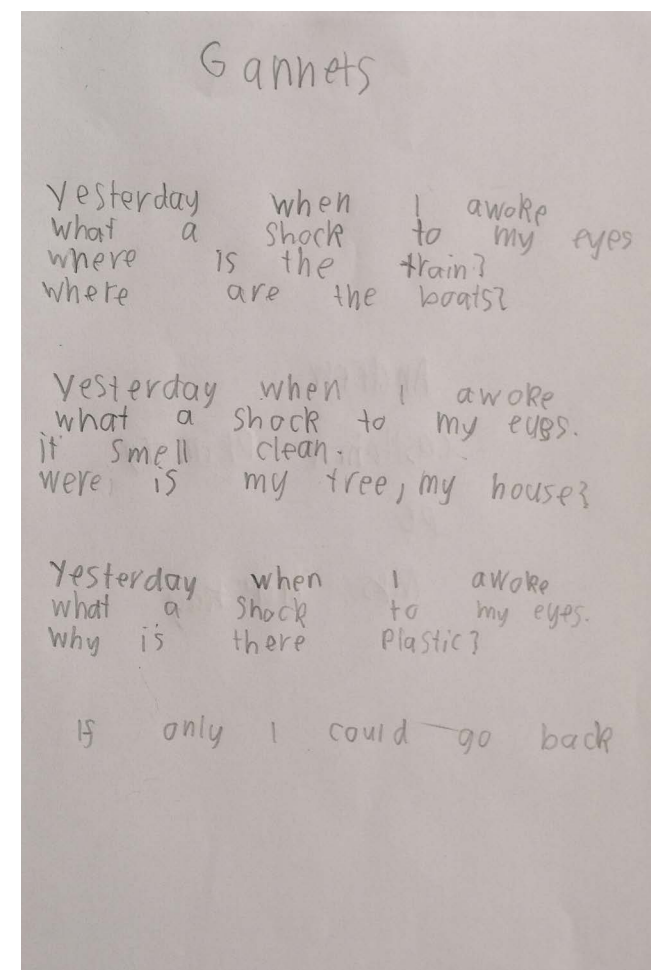 Gannets
Yesterday when I awoke
what a shock to my eyes
where is the train?
where are the boats?
Yesterday when I awoke
what a shock to my eyes.
it smell clean.
were is my tree, my house?
Yesterday when I awoke
what a shock to my eyes.
Why is there Plastic?
If only I could go back